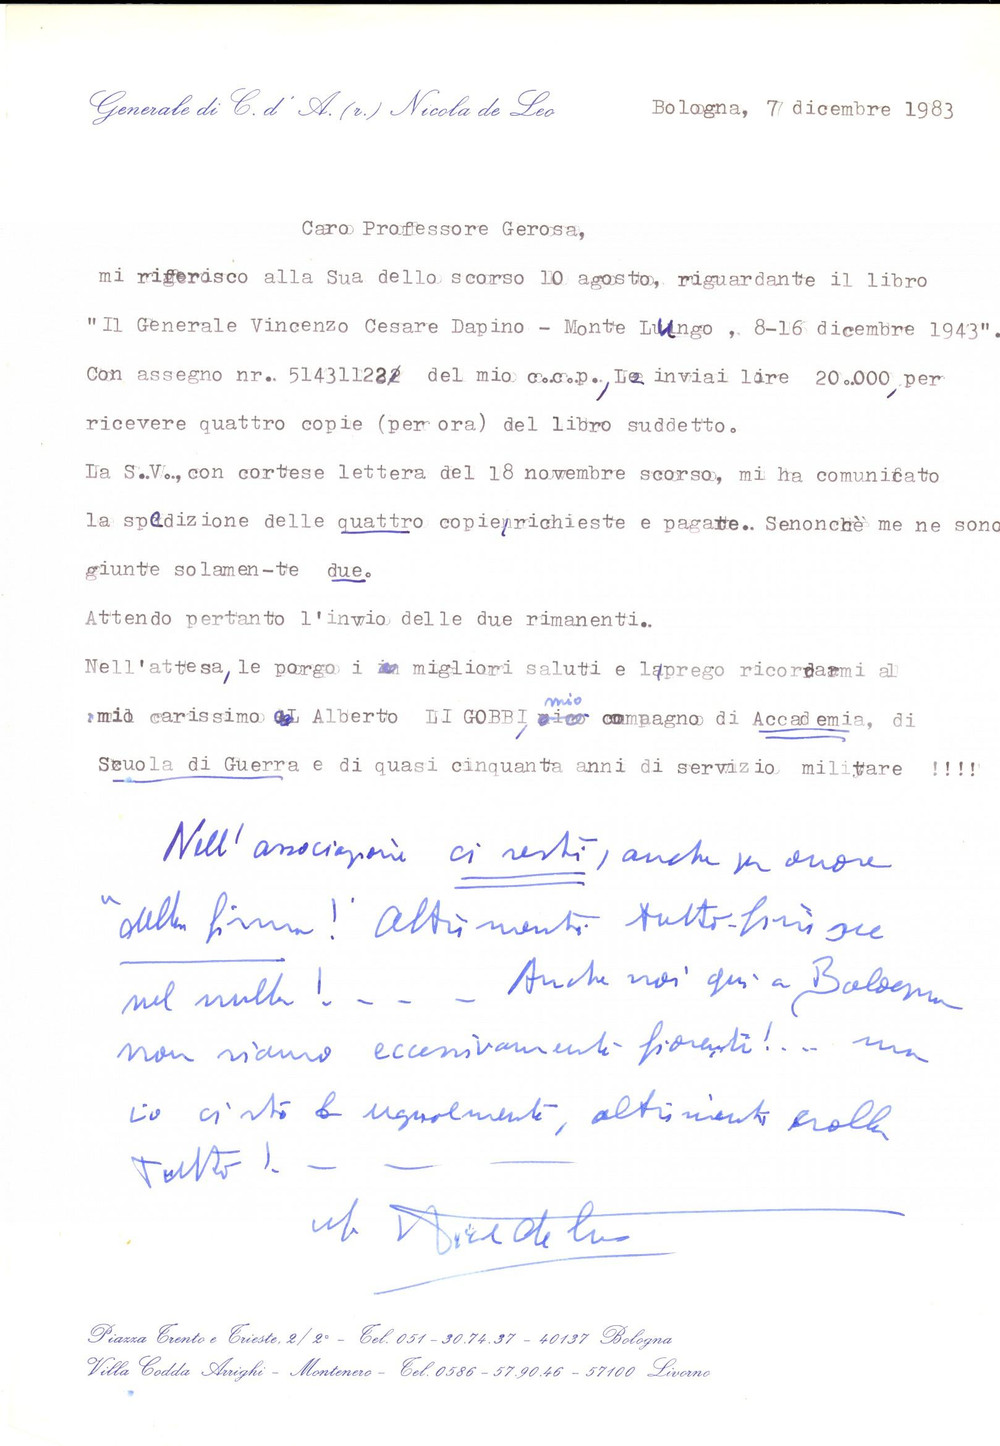 Generale di C. d'A. (r.) Nicola de Leo
Bologna, 7 dicembre 1983
Caro Professore Gerosa,
mi riferisco alla Sua dello scorso 10 agosto, riguardante il libro
"Il Generale Vincenzo Cesare Dapino - Monte Lungo , 8-16 dicembre 1943".
Con assegno nr. 514311222 del mio c.c.p., Le inviai lire 20.000, per
ricevere quattro copie (per ora) del libro suddetto.
La S.V., con cortese lettera del 18 novembre scorso, mi ha comunicato
la spedizione delle quattro copie, richieste e pagate. Senonchè me ne sono
giunte solamen-te due.
Attendo pertanto l'invio delle due rimanenti.
Nell'attesa, le porgo i migliori saluti e la prego ricordarmi al
mio carissimo Alberto LI GOBBI, mio compagno di Accademia, di
Scuola di Guerra e di quasi cinquanta anni di servizio militare !!!!
Nell'associazione ci resti, anche per onore
"della firma!" Altrimenti tutto finisce
nel nulla! - - - Anche noi qui a Bologna
non siamo eccessivamente fiorenti! - - ma
io ci sto ugualmente, altrimenti crolla
tutto! - - -
Nicola de Leo
Piazza Trento e Trieste, 2/2° - Tel. 051 - 30.74.37 - 40137 Bologna
Villa Codda Arrighi - Montenero - Tel. 0586 - 57.90.46 - 57100 Livorno